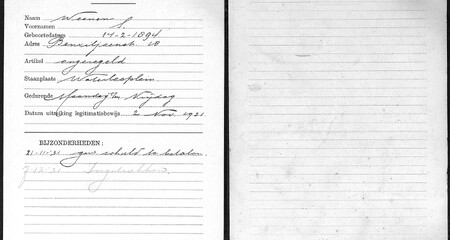 Naam Weenen
Voornamen S.
Geboortedatum 14-2-1894
Adres
Artikel ongeregeld
Standplaats Waterlooplein.
Gedurende Maandag t/m Vrijdag
Datum uitreiking legitimatiebewijs 2 Nov. 1931
BIJZONDERHEDEN:
21-11-31 gew. schuld te betalen.
7-12-31 Ingetrokken.